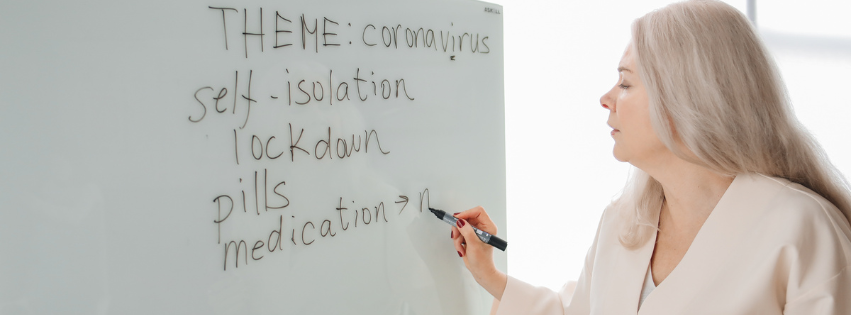 THEME: coronavirus
self-isolation
lockdown
pills
medication → n